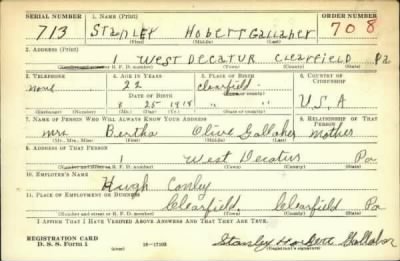 SERIAL NUMBER 1. NAME (Print) ORDER NUMBER
713 STANLEY Hobert Gallaher 708
(First) (Middle) (Last)
2. ADDRESS (Print)
WEST DECATUR Clearfield Pa
(Number and street or R. F. D. number) (Town) (County) (State)
3. TELEPHONE 4. AGE IN YEARS 5. PLACE OF BIRTH 6. COUNTRY OF CITIZENSHIP
none 22 Clearfield
DATE OF BIRTH (Town or county)
8 25 1918 Pa U.S.A
(Exchange) (Number) (Mo.) (Day) (Yr.) (State or country)
7. NAME OF PERSON WHO WILL ALWAYS KNOW YOUR ADDRESS 8. RELATIONSHIP OF THAT PERSON
Mrs Bertha Olive Gallaher Mother
(Mr., Mrs., Miss) (First) (Middle) (Last)
9. ADDRESS OF THAT PERSON
1 West Decatur Pa
(Number and street or R. F. D. number) (Town) (County) (State)
10. EMPLOYER'S NAME
Hugh Conley
11. PLACE OF EMPLOYMENT OR BUSINESS
Clearfield Clearfield Pa
(Number and street or R. F. D. number) (Town) (County) (State)
I AFFIRM THAT I HAVE VERIFIED ABOVE ANSWERS AND THAT THEY ARE TRUE.
REGISTRATION CARD
D. S. S. Form 1 (over) Stanley Hobert Gallaher